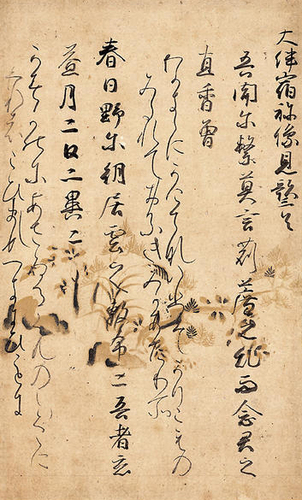 大伴宿祢像見謌三首
吾聞尓繋莫言苅薦之乱而念君之
直香曽
わかきゝにかけてないひそかりこもの
みたれておもふきみかたゝかそ
春日野尓朝居雲之敷布二吾者恋
益月二日二異二
かすかのにあさゐるくものしくしくに
われはこひますつきにひにけに